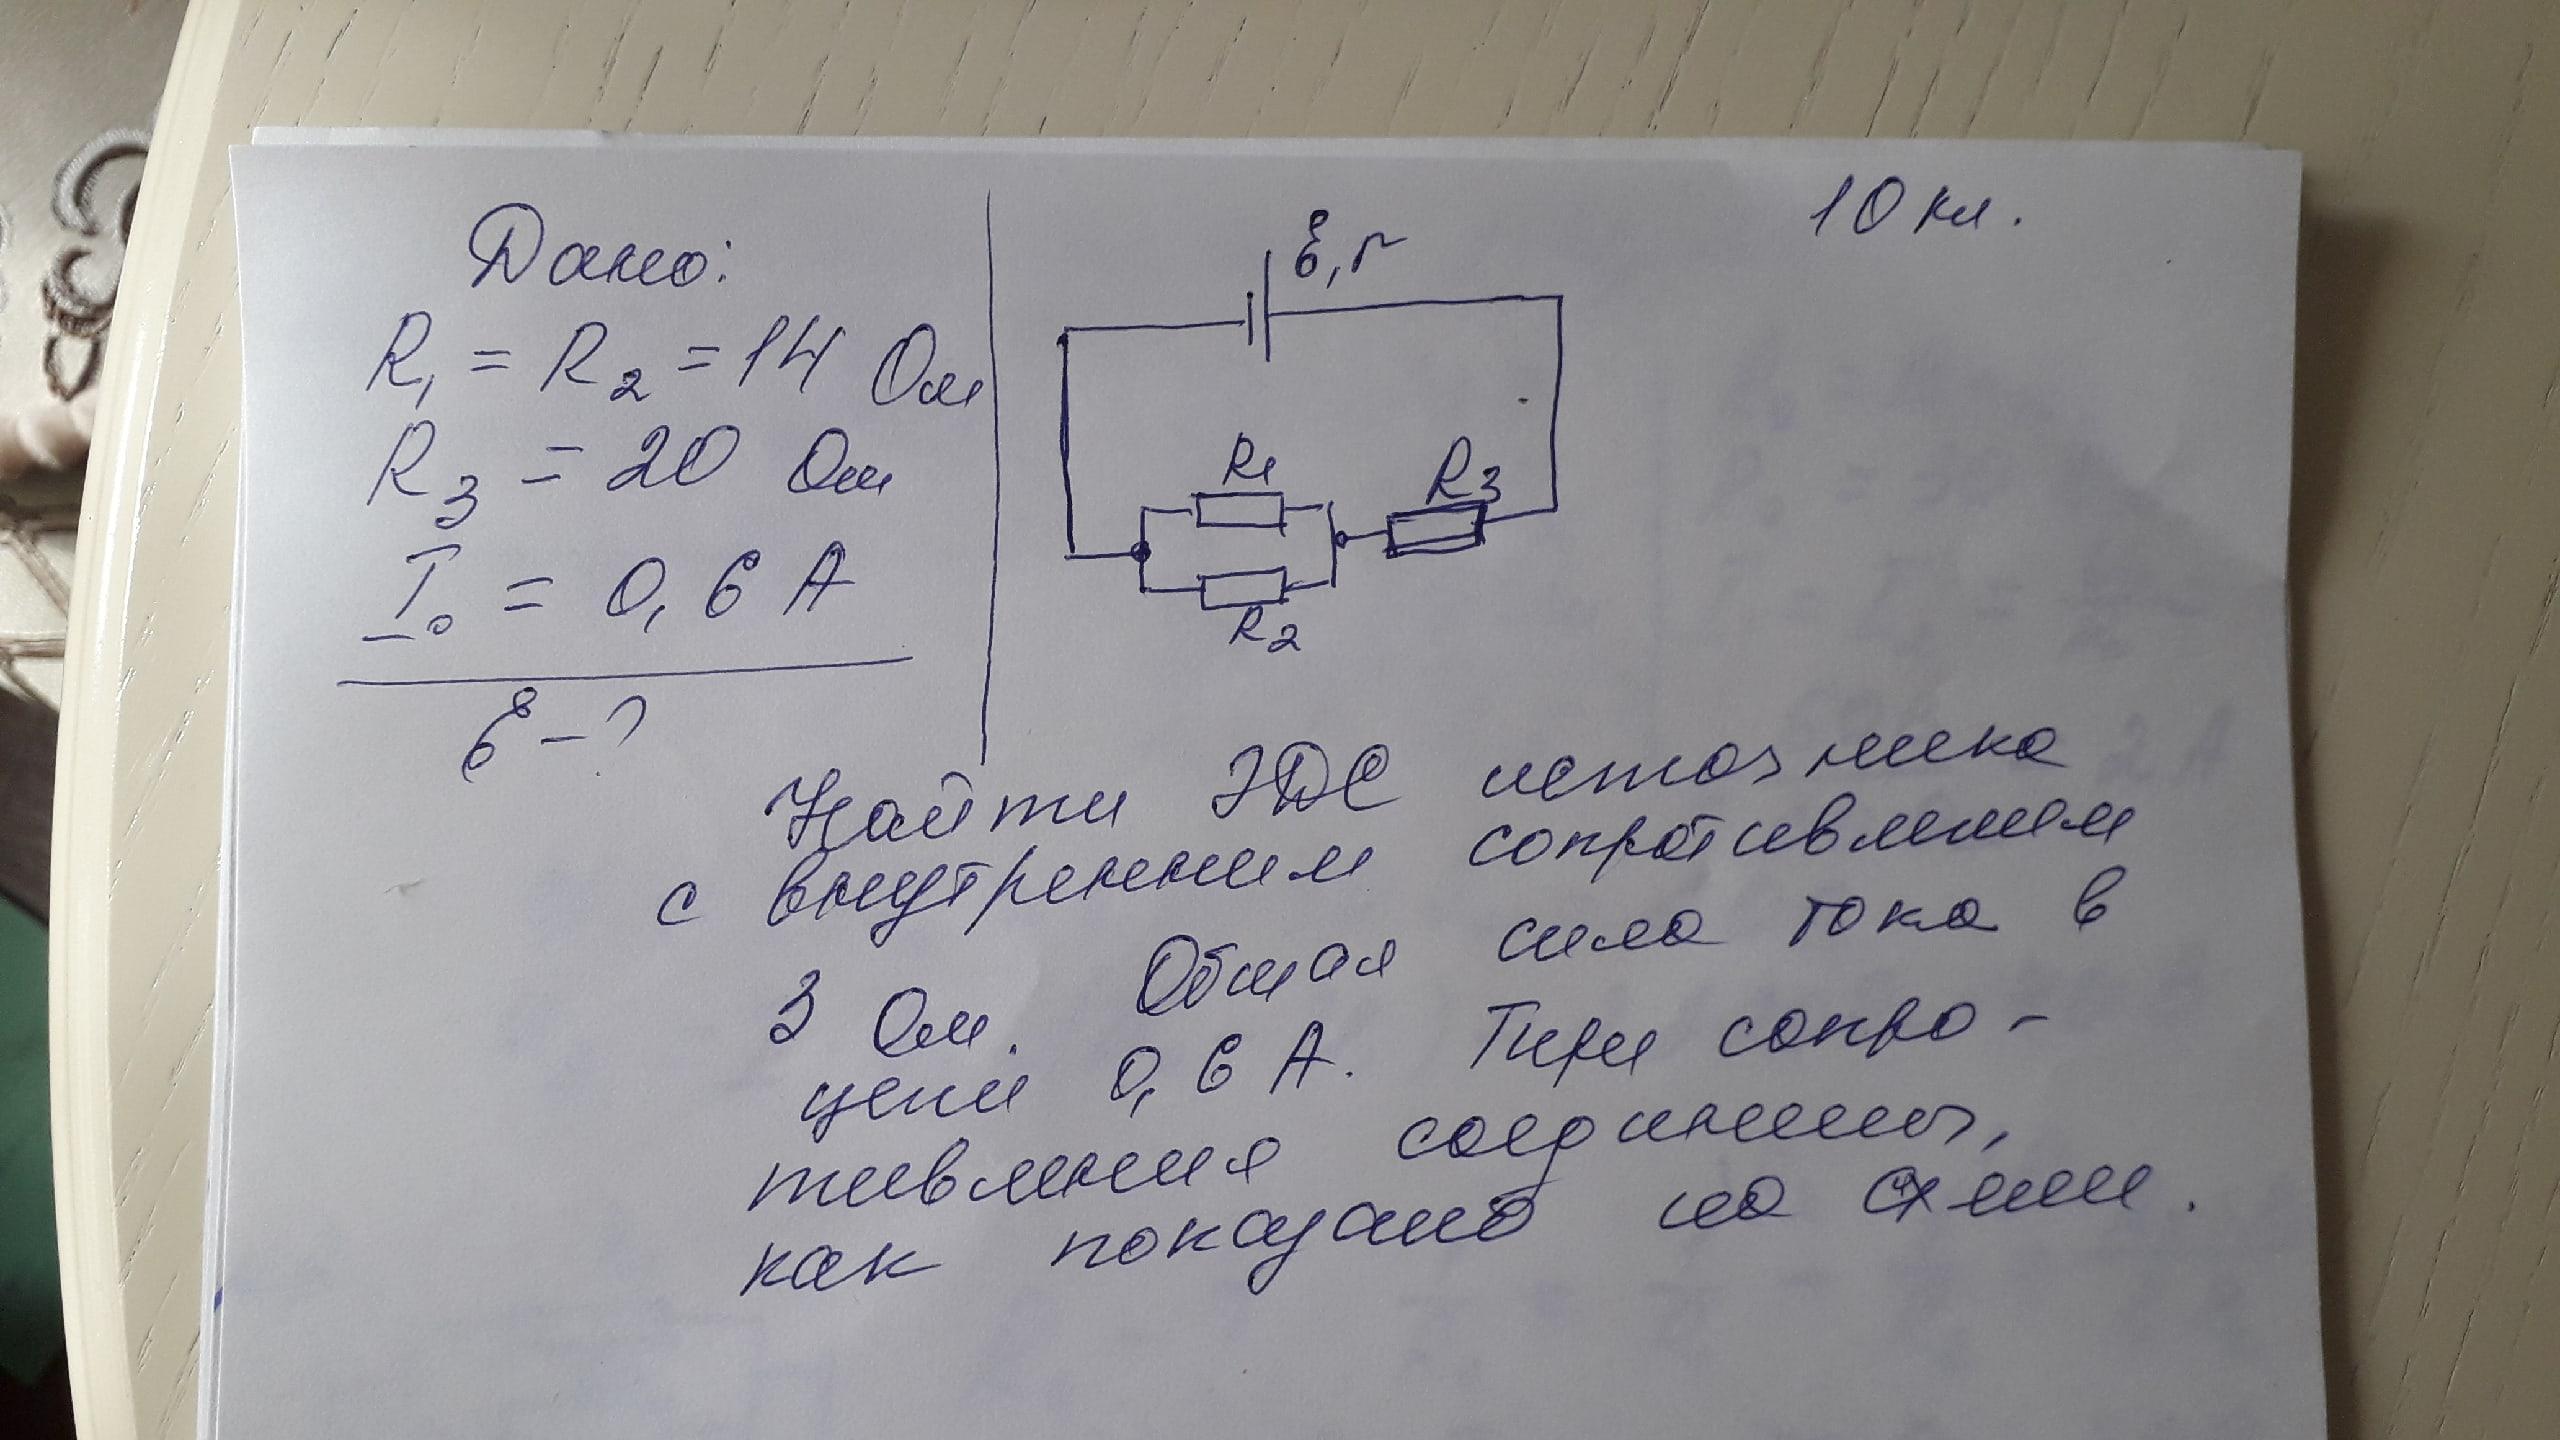 10 кл.
Дано:
R₁ = R₂ = 14 Ом
R₃ = 20 Ом
I₀ = 0,6 А
ℰ – ?
ℰ, r
R1
R3
R2
Найти ЭДС источника
с внутренним сопротивлением
3 Ом. Общая сила тока в
цепи 0,6 А. Три сопро-
тивления соединены,
как показано на схеме.